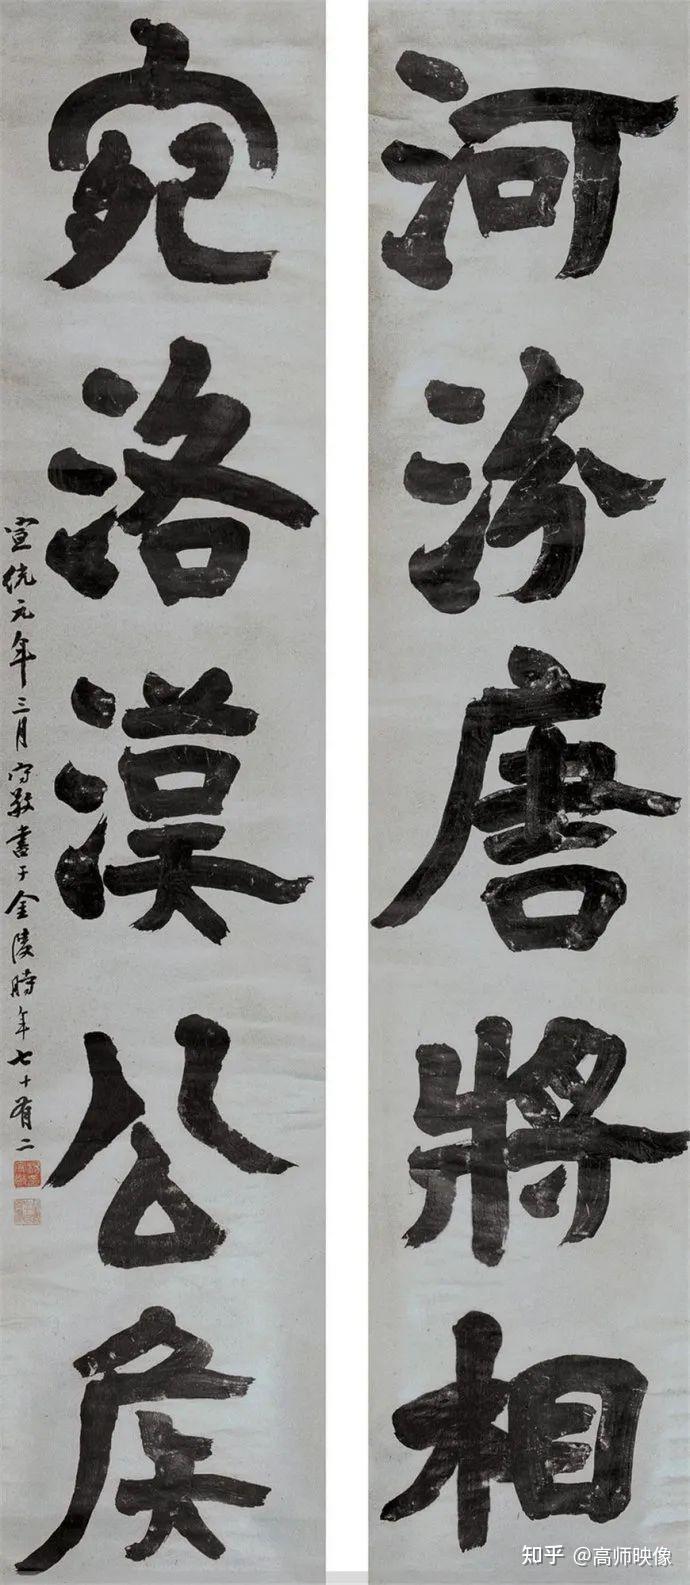 河汾唐將相
宛洛漢公矦
宣統元年三月守敬書于金陵時年七十有二
知乎 @高师映像